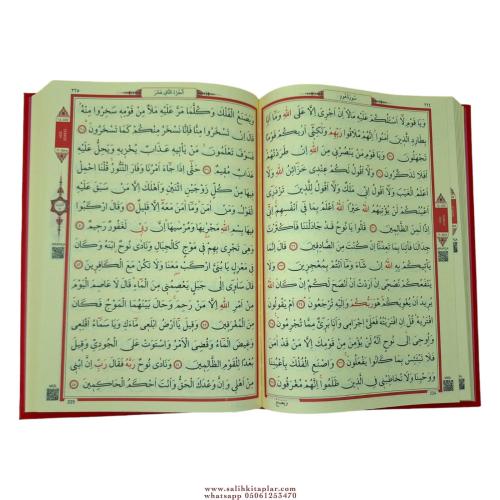 سُورَةُ هُودٍ
٢٢٤
وَيَا قَوْمِ لَا اَسْـَٔلُكُمْ عَلَيْهِ مَالًا اِنْ اَجْرِيَ اِلَّا عَلَى اللّٰهِ وَمَا اَنَا
بِطَارِدِ الَّذِينَ اٰمَنُوا اِنَّهُمْ مُلَاقُوا رَبِّهِمْ وَلٰكِنِّي اَرٰيكُمْ قَوْمًا
تَجْهَلُونَ وَيَا قَوْمِ مَنْ يَنْصُرُنِي مِنَ اللّٰهِ اِنْ طَرَدْتُهُمْ
اَفَلَا تَذَكَّرُونَ وَلَا اَقُولُ لَكُمْ عِنْدِي خَزَائِنُ اللّٰهِ وَلَا
اَعْلَمُ الْغَيْبَ وَلَا اَقُولُ اِنِّي مَلَكٌ وَلَا اَقُولُ لِلَّذِينَ تَزْدَرِي
اَعْيُنُكُمْ لَنْ يُؤْتِيَهُمُ اللّٰهُ خَيْرًا اَللّٰهُ اَعْلَمُ بِمَا فِي اَنْفُسِهِمْ اِنِّي
اِذًا لَمِنَ الظَّالِمِينَ قَالُوا يَا نُوحُ قَدْ جَادَلْتَنَا فَاَكْثَرْتَ
جِدَالَنَا فَأْتِنَا بِمَا تَعِدُنَا اِنْ كُنْتَ مِنَ الصَّادِقِينَ قَالَ اِنَّمَا
يَأْتِيكُمْ بِهِ اللّٰهُ اِنْ شَاءَ وَمَا اَنْتُمْ بِمُعْجِزِينَ وَلَا
يَنْفَعُكُمْ نُصْحِي اِنْ اَرَدْتُ اَنْ اَنْصَحَ لَكُمْ اِنْ كَانَ اللّٰهُ
يُرِيدُ اَنْ يُغْوِيَكُمْ هُوَ رَبُّكُمْ وَاِلَيْهِ تُرْجَعُونَ اَمْ يَقُولُونَ
افْتَرٰيهُ قُلْ اِنِ افْتَرَيْتُهُ فَعَلَيَّ اِجْرَامِي وَاَنَا بَرِيءٌ مِمَّا تُجْرِمُونَ
وَاُوحِيَ اِلٰى نُوحٍ اَنَّهُ لَنْ يُؤْمِنَ مِنْ قَوْمِكَ اِلَّا مَنْ قَدْ اٰمَنَ
فَلَا تَبْتَئِسْ بِمَا كَانُوا يَفْعَلُونَ وَاصْنَعِ الْفُلْكَ بِاَعْيُنِنَا
وَوَحْيِنَا وَلَا تُخَاطِبْنِي فِي الَّذِينَ ظَلَمُوا اِنَّهُمْ مُغْرَقُونَ
وَيَصْنَعُ
اَلْجُزْءُ الثَّانِي عَشَرَ
٢٢٥
وَيَصْنَعُ الْفُلْكَ وَكُلَّمَا مَرَّ عَلَيْهِ مَلَاٌ مِنْ قَوْمِهِ سَخِرُوا مِنْهُ
قَالَ اِنْ تَسْخَرُوا مِنَّا فَاِنَّا نَسْخَرُ مِنْكُمْ كَمَا تَسْخَرُونَ
فَسَوْفَ تَعْلَمُونَ مَنْ يَأْتِيهِ عَذَابٌ يُخْزِيهِ وَيَحِلُّ عَلَيْهِ
عَذَابٌ مُقِيمٌ حَتّٰى اِذَا جَاءَ اَمْرُنَا وَفَارَ التَّنُّورُ قُلْنَا احْمِلْ
فِيهَا مِنْ كُلٍّ زَوْجَيْنِ اثْنَيْنِ وَاَهْلَكَ اِلَّا مَنْ سَبَقَ عَلَيْهِ
الْقَوْلُ وَمَنْ اٰمَنَ وَمَا اٰمَنَ مَعَهُ اِلَّا قَلِيلٌ وَقَالَ ارْكَبُوا
فِيهَا بِسْمِ اللّٰهِ مَجْرٰيهَا وَمُرْسٰيهَا اِنَّ رَبِّي لَغَفُورٌ رَحِيمٌ
وَهِيَ تَجْرِي بِهِمْ فِي مَوْجٍ كَالْجِبَالِ وَنَادٰى نُوحٌ ابْنَهُ وَكَانَ
فِي مَعْزِلٍ يَا بُنَيَّ ارْكَبْ مَعَنَا وَلَا تَكُنْ مَعَ الْكَافِرِينَ
قَالَ سَاٰوِي اِلٰى جَبَلٍ يَعْصِمُنِي مِنَ الْمَاءِ قَالَ لَا عَاصِمَ الْيَوْمَ
مِنْ اَمْرِ اللّٰهِ اِلَّا مَنْ رَحِمَ وَحَالَ بَيْنَهُمَا الْمَوْجُ فَكَانَ
مِنَ الْمُغْرَقِينَ وَقِيلَ يَا اَرْضُ ابْلَعِي مَاءَكِ وَيَا سَمَاءُ اَقْلِعِي
وَغِيضَ الْمَاءُ وَقُضِيَ الْاَمْرُ وَاسْتَوَتْ عَلَى الْجُودِيِّ وَقِيلَ
بُعْدًا لِلْقَوْمِ الظَّالِمِينَ وَنَادٰى نُوحٌ رَبَّهُ فَقَالَ رَبِّ اِنَّ ابْنِي
مِنْ اَهْلِي وَاِنَّ وَعْدَكَ الْحَقُّ وَاَنْتَ اَحْكَمُ الْحَاكِمِينَ
225
www.salihkitaplar.com
whatsapp 05061253470